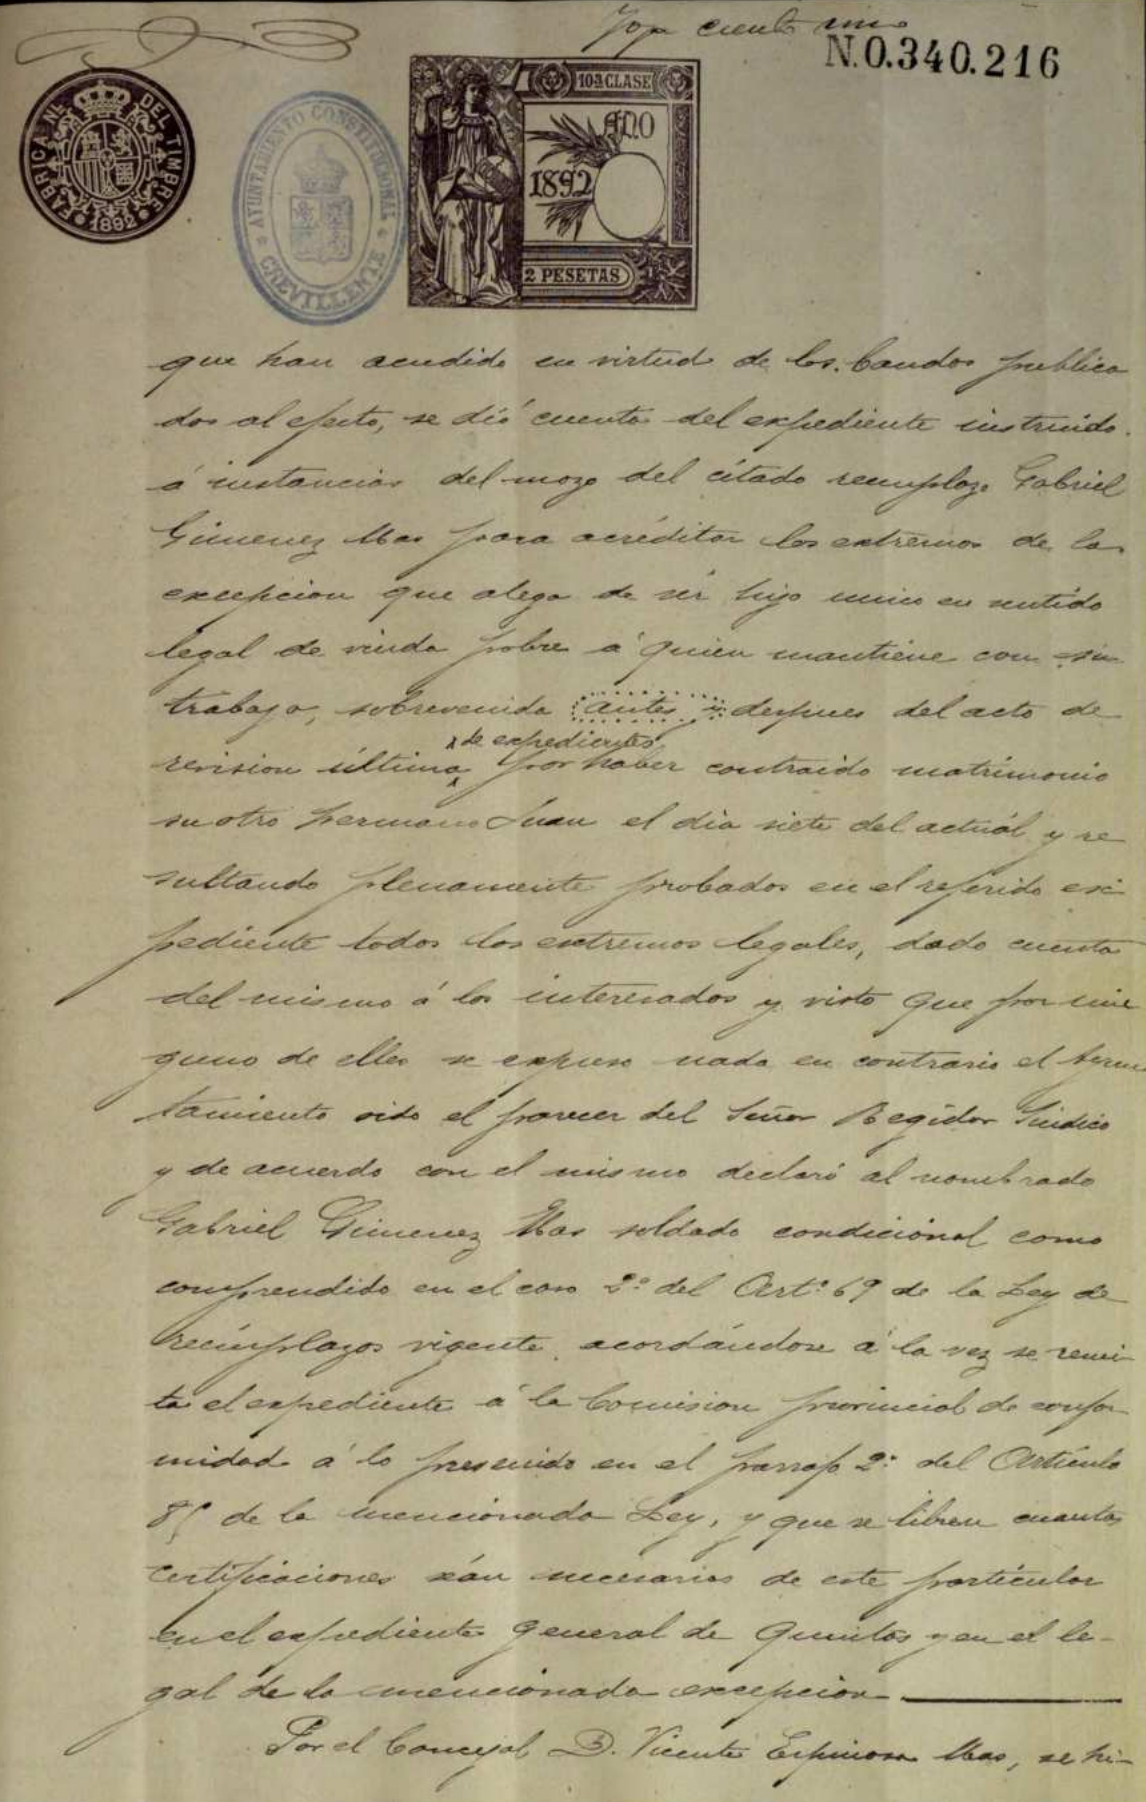 Foja ciento uno
N.0.340.216
FÁBRICA NL. DEL TIMBRE
1892
AYUNTAMIENTO CONSTITUCIONAL
CREVILLENTE
10ª CLASE
AÑO
1892
2 PESETAS
que han acudido en virtud de los bandos publica
dos al efecto, se dió cuenta del expediente instruido
á instancias del mozo del citado reemplazo Gabriel
Gimenez Mas para acréditar los extremos de la
excepcion que alega de ser hijo unico en sentido
legal de viuda pobre á quien mantiene con su
trabajo, sobrevenida antes y despues del acto de
de expedientes
revision última por haber contraido matrimonio
su otro hermano Juan el dia siete del actuál y re
sultando plenamente probados en el referido ex
pediente todos los extremos legales, dado cuenta
del mismo á los interesados y visto que por nin
guno de ellos se expuso nada en contrario el Ayun
tamiento oido el parecer del Señor Regidor Sindico
y de acuerdo con el mismo declaró al nombrado
Gabriel Gimenez Mas soldado condicional como
comprendido en el caso 2º del Artº 69 de la Ley de
reemplazos vigente, acordándose á la vez se remi
ta el expediente á la Comision provincial de confor
midad á lo prevenido en el parrafo 2º del Artículo
85 de la mencionada Ley, y que se libren cuantas
certificaciones séan necesarias de este particular
en el expediente general de Quintas y en el le-
gal de la mencionada excepcion
Por el Concejal D. Vicente Espinosa Mas, se hi-